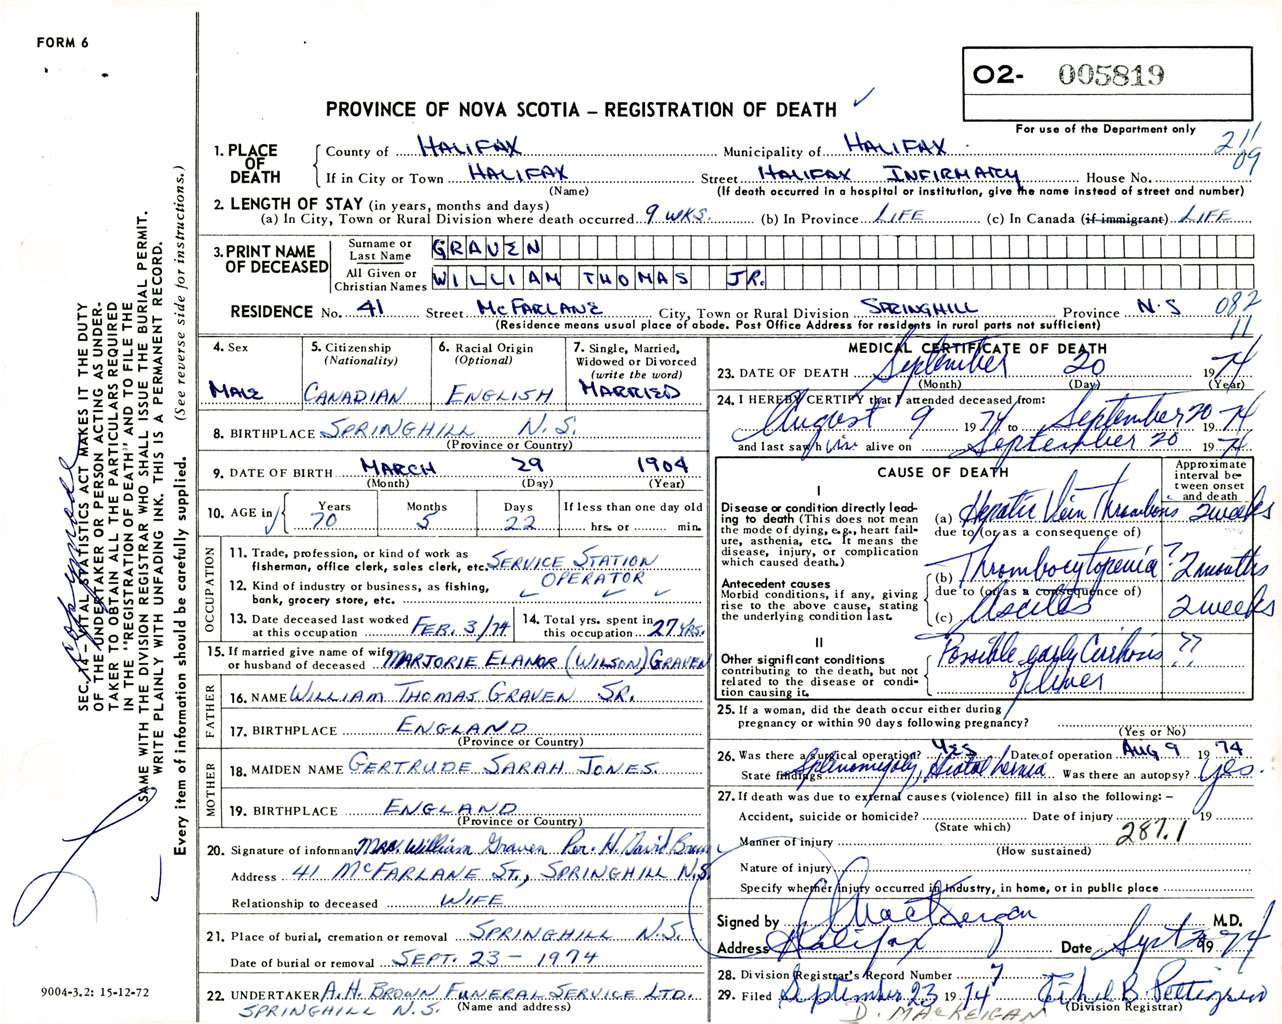 FORM 6
O2- 005819
PROVINCE OF NOVA SCOTIA – REGISTRATION OF DEATH ✓
For use of the Department only
211
09
1. PLACE OF DEATH
County of HALIFAX Municipality of HALIFAX
If in City or Town HALIFAX Street HALIFAX INFIRMARY House No.
(Name) (If death occurred in a hospital or institution, give the name instead of street and number)
2. LENGTH OF STAY (in years, months and days)
(a) In City, Town or Rural Division where death occurred 9 WKS. (b) In Province LIFE (c) In Canada (if immigrant) LIFE
3. PRINT NAME OF DECEASED
Surname or Last Name GRAVEN
All Given or Christian Names WILLIAM THOMAS JR.
RESIDENCE No. 41 Street McFARLANE City, Town or Rural Division SPRINGHILL Province N.S 082
11
(Residence means usual place of abode. Post Office Address for residents in rural parts not sufficient)
4. Sex
MALE
5. Citizenship
(Nationality)
CANADIAN
6. Racial Origin
(Optional)
ENGLISH
7. Single, Married, Widowed or Divorced
(write the word)
MARRIED
8. BIRTHPLACE SPRINGHILL N.S.
(Province or Country)
9. DATE OF BIRTH MARCH 29 1904
(Month) (Day) (Year)
10. AGE in
Years 70
Months 5
Days 22
If less than one day old
hrs. or min.
OCCUPATION
11. Trade, profession, or kind of work as
fisherman, office clerk, sales clerk, etc. SERVICE STATION
OPERATOR
12. Kind of industry or business, as fishing,
bank, grocery store, etc.
13. Date deceased last worked
at this occupation FEB. 3/74
14. Total yrs. spent in
this occupation 27 YRS.
15. If married give name of wife
or husband of deceased MARJORIE ELANOR (WILSON) GRAVEN
FATHER
16. NAME WILLIAM THOMAS GRAVEN SR.
17. BIRTHPLACE ENGLAND
(Province or Country)
MOTHER
18. MAIDEN NAME GERTRUDE SARAH JONES.
19. BIRTHPLACE ENGLAND
(Province or Country)
20. Signature of informant Mrs. William Graven Per. H. David Brown
Address 41 McFARLANE ST., SPRINGHILL N.S.
Relationship to deceased WIFE
21. Place of burial, cremation or removal SPRINGHILL N.S.
Date of burial or removal SEPT. 23 – 1974
22. UNDERTAKER A.H. BROWN FUNERAL SERVICE LTD.
SPRINGHILL N.S. (Name and address)
MEDICAL CERTIFICATE OF DEATH
23. DATE OF DEATH September 20 1974
(Month) (Day) (Year)
24. I HEREBY CERTIFY that I attended deceased from:
August 9 1974 to September 20 1974
and last saw him alive on September 20 1974
CAUSE OF DEATH
Approximate interval between onset and death
I
Disease or condition directly leading to death (This does not mean the mode of dying, e.g., heart failure, asthenia, etc. It means the disease, injury, or complication which caused death.)
(a) Hepatic Vein Thrombosis 2 weeks
due to (or as a consequence of)
Antecedent causes
Morbid conditions, if any, giving rise to the above cause, stating the underlying condition last.
(b) Thrombocytopenia ? 2 months
due to (or as a consequence of)
(c) Ascites 2 weeks
II
Other significant conditions contributing to the death, but not related to the disease or condition causing it.
Possible early Cirrhosis ??
of liver
25. If a woman, did the death occur either during
pregnancy or within 90 days following pregnancy?
(Yes or No)
26. Was there a surgical operation? YES Date of operation AUG 9 1974
State findings Splenomegaly, Hiatal hernia Was there an autopsy? Yes.
27. If death was due to external causes (violence) fill in also the following: –
Accident, suicide or homicide? Date of injury 19
(State which) 287.1
Manner of injury
(How sustained)
Nature of injury
Specify whether injury occurred in industry, in home, or in public place
Signed by MacKeigan M.D.
Address Halifax Date Sept 1974
28. Division Registrar's Record Number 7
29. Filed September 23 1974 Ethel B. Pettigrew
(Division Registrar)
D. MACKEIGAN
SEC. 14 – VITAL STATISTICS ACT MAKES IT THE DUTY
OF THE UNDERTAKER OR PERSON ACTING AS UNDERTAKER TO OBTAIN ALL THE PARTICULARS REQUIRED
IN THE "REGISTRATION OF DEATH" AND TO FILE THE
SAME WITH THE DIVISION REGISTRAR WHO SHALL ISSUE THE BURIAL PERMIT.
WRITE PLAINLY WITH UNFADING INK. THIS IS A PERMANENT RECORD.
Every item of information should be carefully supplied. (See reverse side for instructions.)
9004-3.2: 15-12-72